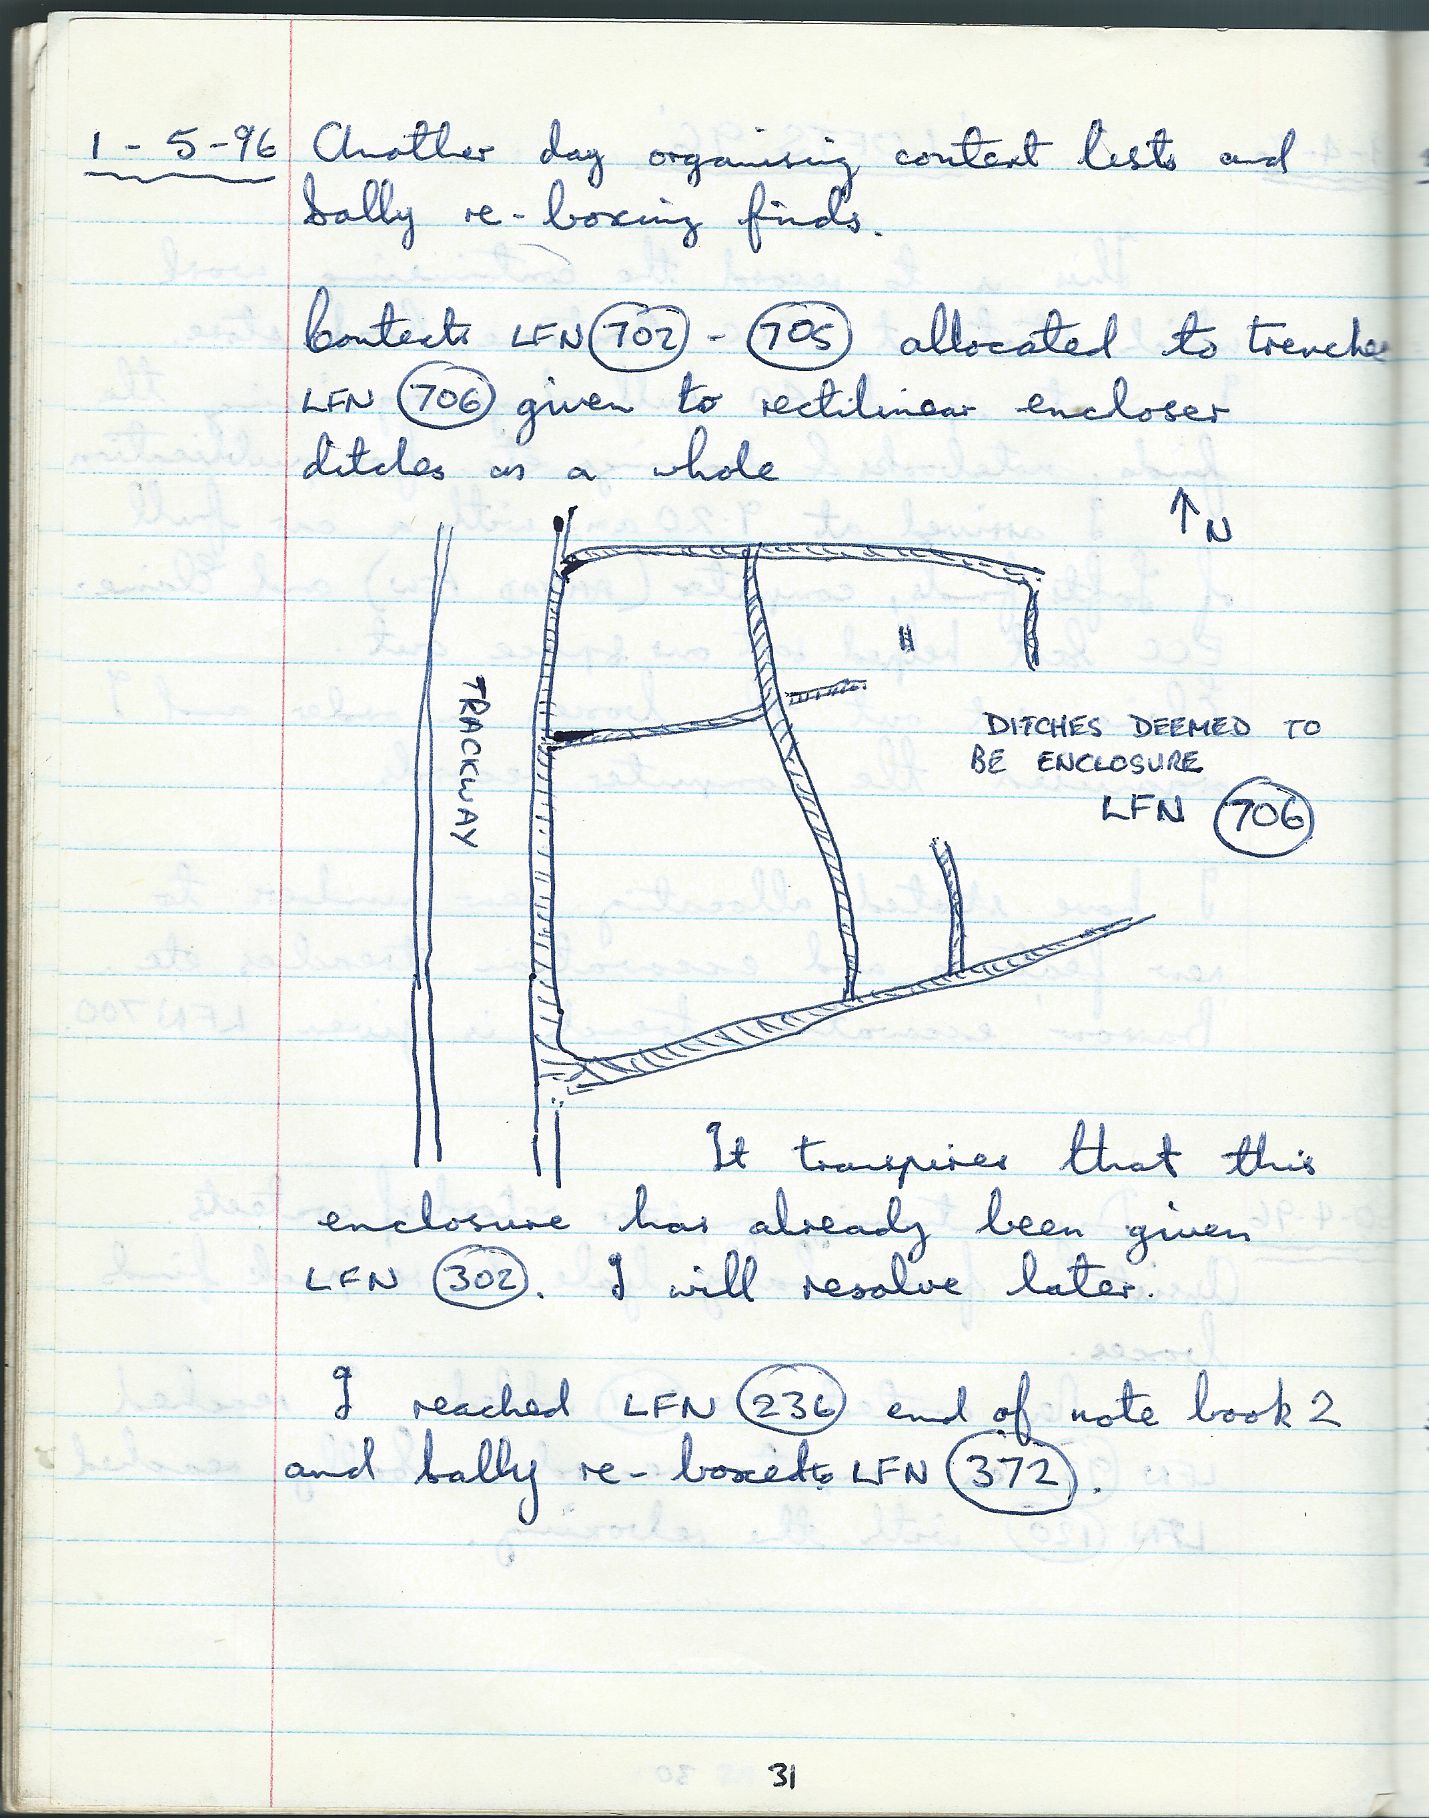 1-5-96 Another day organising context lists and
Sally re-boxing finds.
Contexts LFN 702 - 705 allocated to trenches
LFN 706 given to rectilinear encloser
ditches as a whole
↑N
TRACKWAY
DITCHES DEEMED TO
BE ENCLOSURE
LFN 706
It transpires that this
enclosure has already been given
LFN 302. I will resolve later.
I reached LFN 236 end of note book 2
and Sally re-boxed to LFN 372.
31